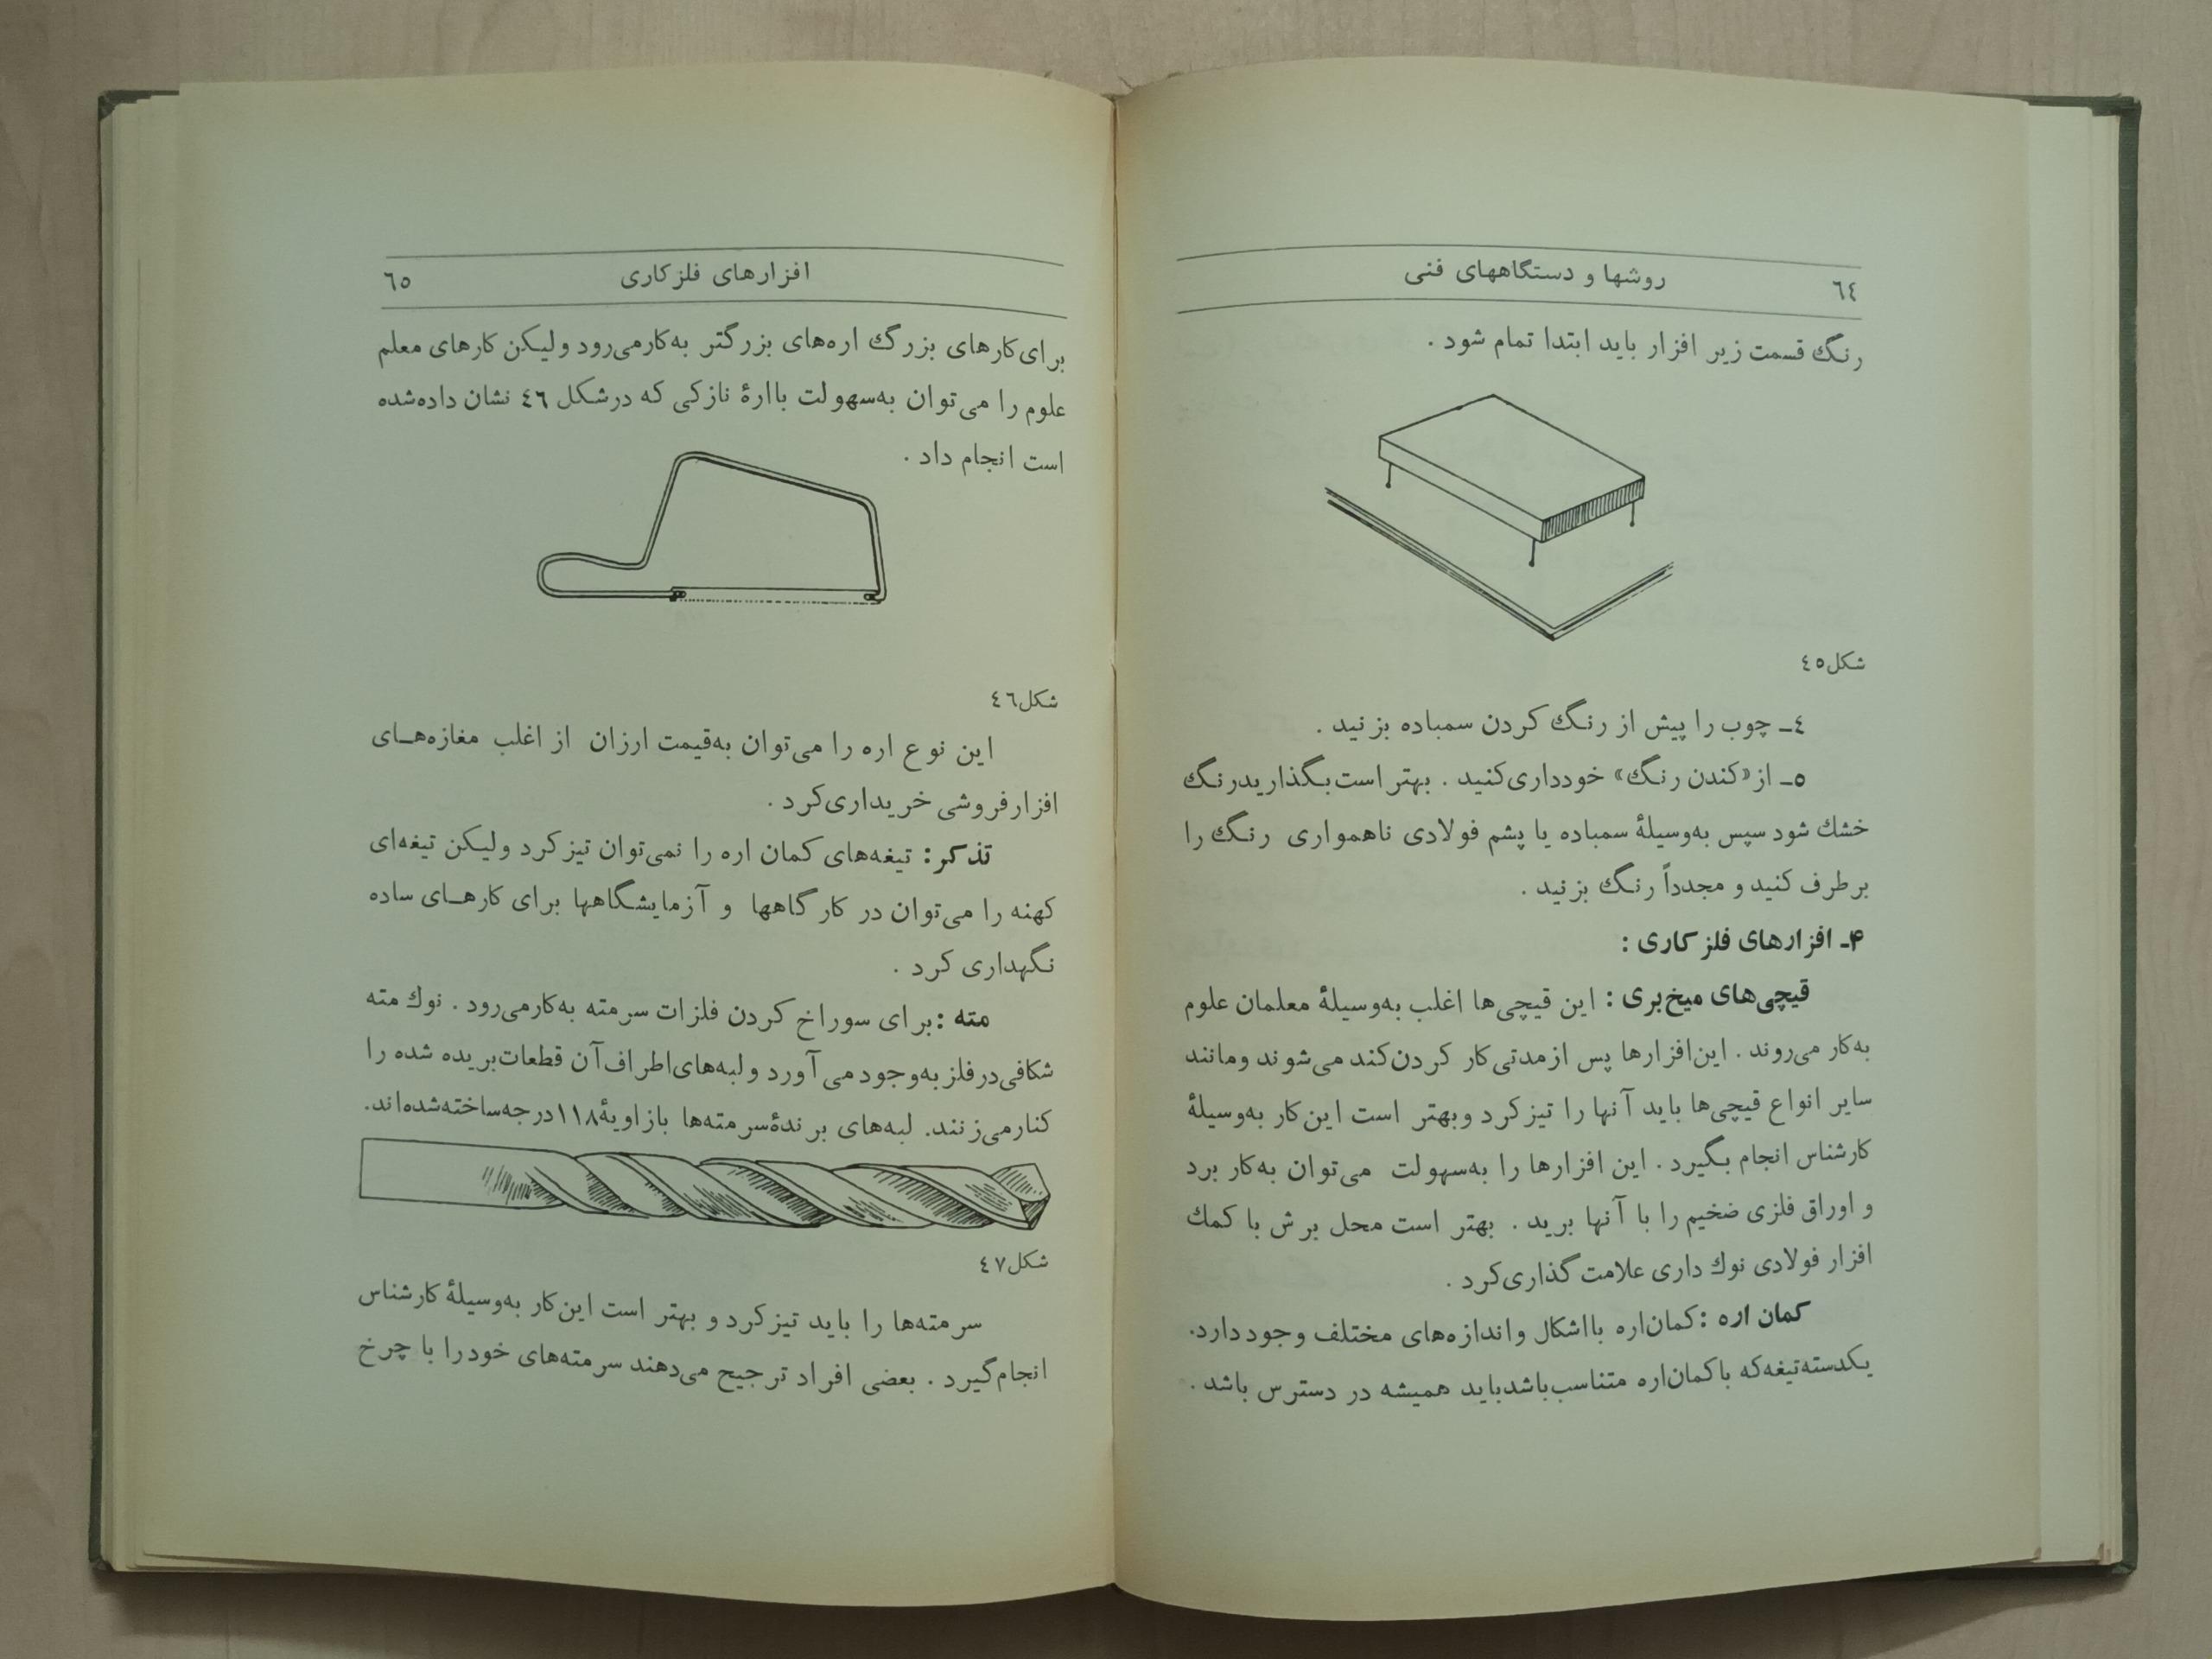 ٦٤ روشها و دستگاههای فنی
رنگ قسمت زیر افزار باید ابتدا تمام شود .
شکل٤٥
٤ـ چوب را پیش از رنگ کردن سمباده بزنید .
٥ـ از «کندن رنگ» خودداری‌کنید . بهتر است‌بگذارید‌رنگ
خشك شود سپس به‌وسیلهٔ سمباده یا پشم فولادی ناهمواری رنگ را
برطرف کنید و مجدداً رنگ بزنید .
۴ـ افزارهای فلزکاری :
قیچی‌های میخ‌بری : این قیچی‌ها اغلب به‌وسیلهٔ معلمان علوم
به‌کار می‌روند . این‌افزارها پس ازمدتی‌کار کردن‌کند می‌شوند ومانند
سایر انواع قیچی‌ها باید آنها را تیزکرد وبهتر است این‌کار به‌وسیلهٔ
کارشناس انجام بگیرد . این افزارها را به‌سهولت می‌توان به‌کار برد
و اوراق فلزی ضخیم را با آنها برید . بهتر است محل برش با کمك
افزار فولادی نوك داری علامت گذاری‌کرد .
کمان اره : کمان‌اره بااشکال واندازه‌های مختلف وجوددارد.
یکدسته‌تیغه‌که باکمان‌اره متناسب‌باشد‌باید همیشه در دسترس باشد .
افزارهای فلزکاری ٦٥
برای‌کارهای بزرگ اره‌های بزرگتر به‌کارمی‌رود ولیکن کارهای معلم
علوم را می‌توان به‌سهولت بااره‌ٔ نازکی که درشکل ٤٦ نشان داده‌شده
است انجام داد .
شکل٤٦
این نوع اره را می‌توان به‌قیمت ارزان از اغلب مغازه‌هـای
افزارفروشی خریداری‌کرد .
تذکر: تیغه‌های کمان اره را نمی‌توان تیزکرد ولیکن تیغه‌ای
کهنه را می‌توان در کارگاهها و آزمایشگاهها برای کارهـای ساده
نگهداری کرد .
مته : برای سوراخ کردن فلزات سرمته به‌کارمی‌رود . نوك مته
شکافی‌درفلز به‌وجود می‌آورد ولبه‌های‌اطراف‌آن قطعات‌بریده شده را
کنارمی‌زنند. لبه‌های برنده‌ٔسرمته‌ها بازاویهٔ١١٨درجه‌ساخته‌شده‌اند.
شکل٤٧
سرمته‌ها را باید تیزکرد و بهتر است این‌کار به‌وسیلهٔ کارشناس
انجام‌گیرد . بعضی افراد ترجیح می‌دهند سرمته‌های خودرا با چرخ